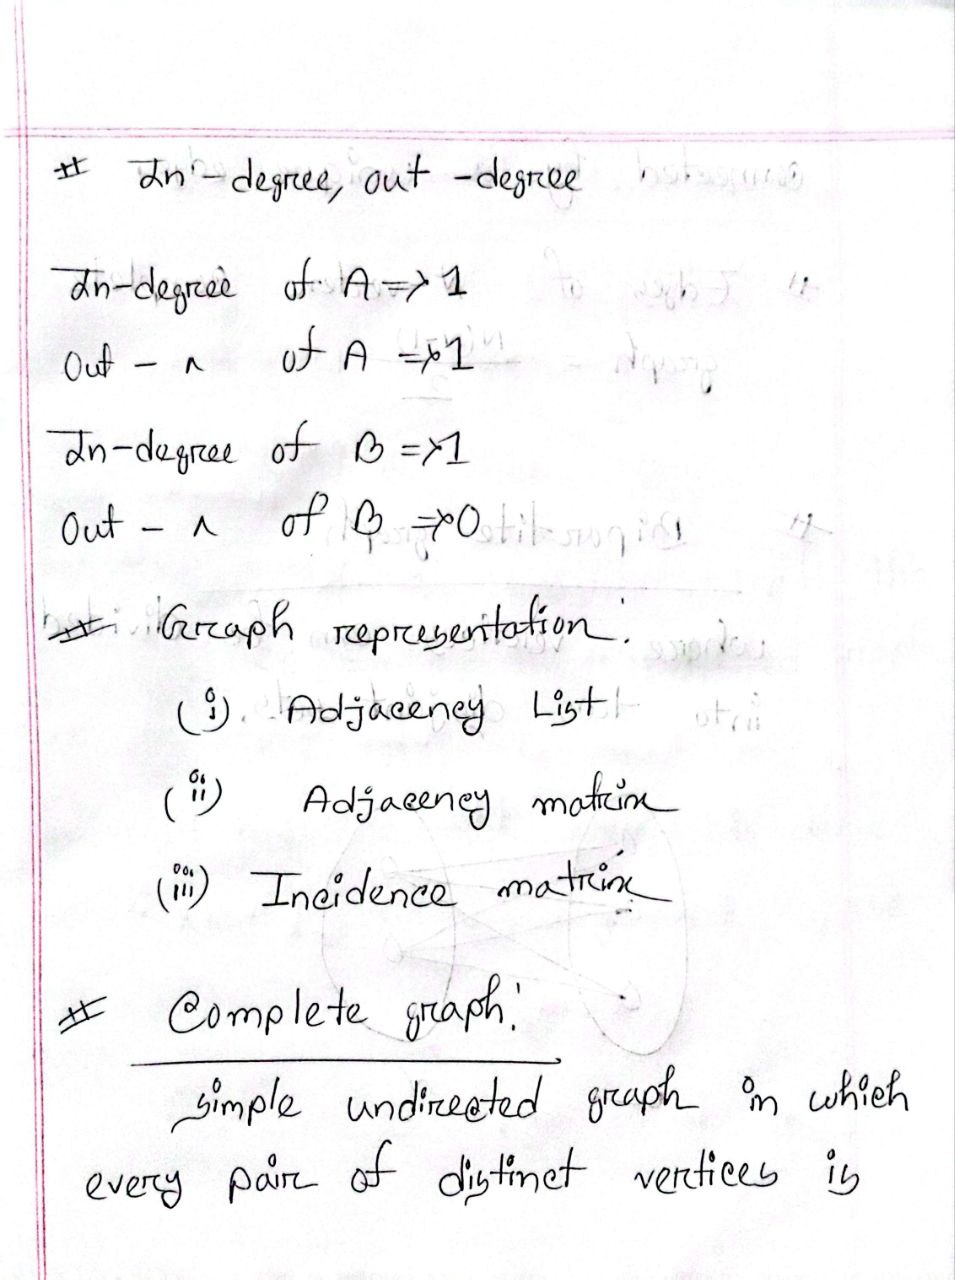 # In-degree, out-degree
In-degree of A => 1
Out - " of A => 1
In-degree of B => 1
Out - " of B => 0
# Graph representation:
(i). Adjacency List
(ii) Adjacency matrix
(iii) Incidence matrix
# Complete graph:
simple undirected graph in which
every pair of distinct vertices is